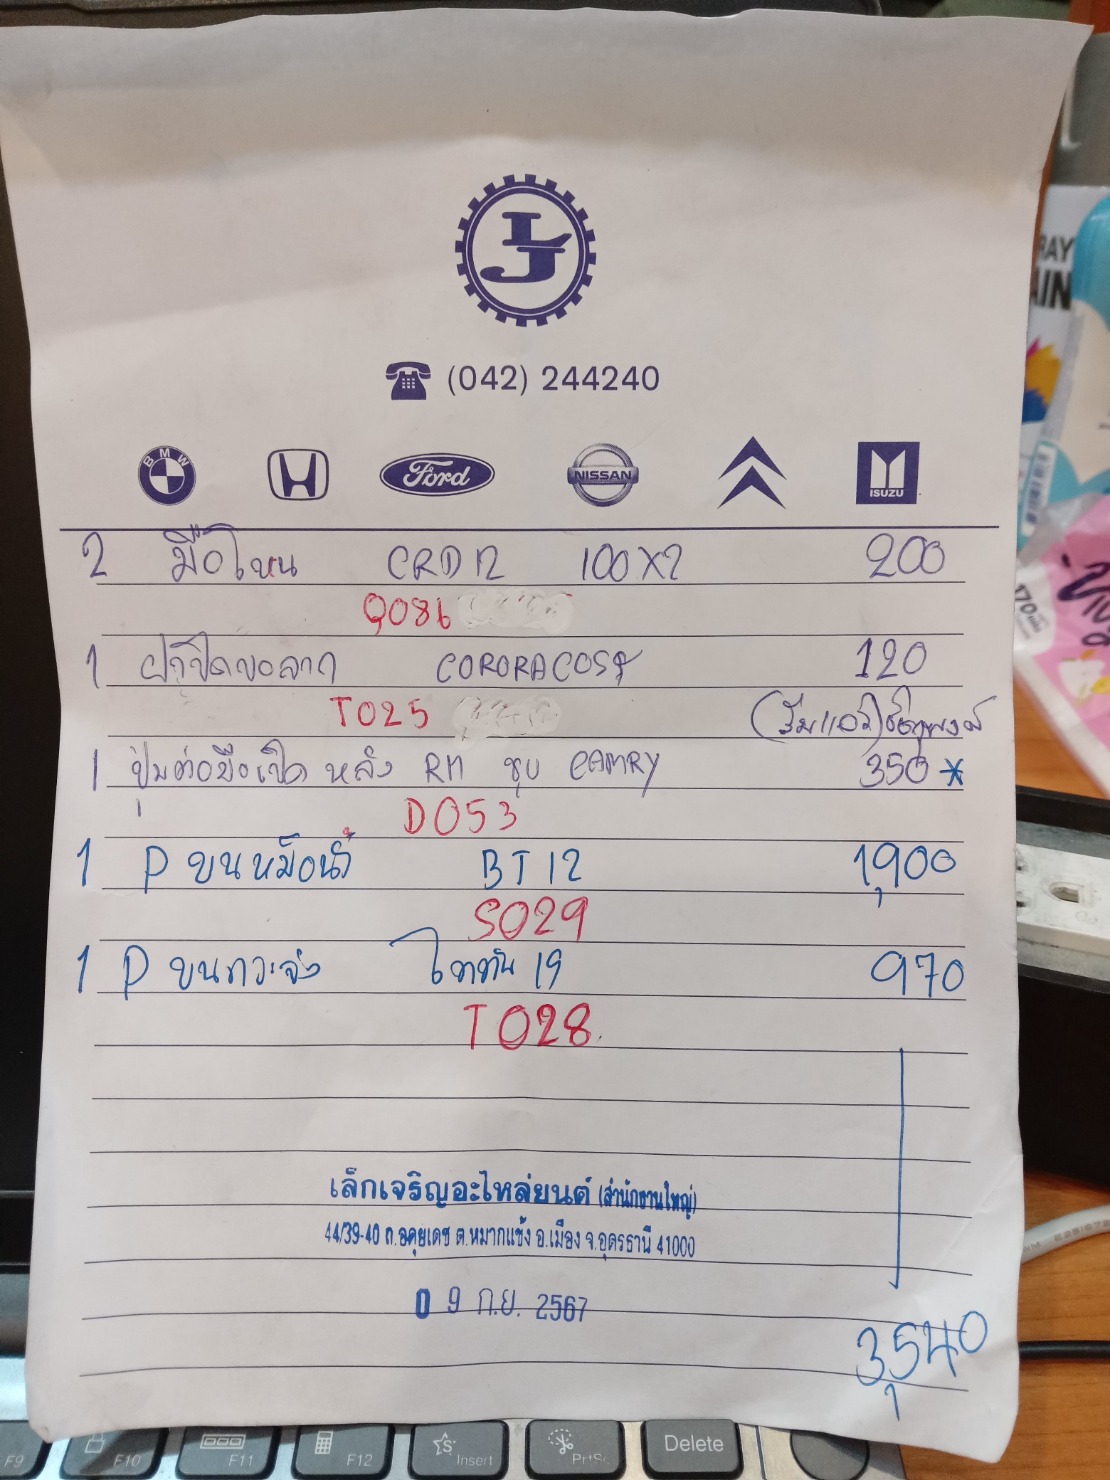 LJ
(042) 244240
BMW Ford NISSAN ISUZU
2 มือโหน CRD12 100X2 200
9086
1 ฝาปิดขอลาก CORORA 120
T025
(ริมแอร์)
1 ปุ่มต่อมือเปิดหลัง RH ชุบ CAMRY 350*
D053
1 P บนหม้อน้ำ BT12 1,900
S029
1 P บนกระจัง ไททัน 19 970
T028
เล็กเจริญอะไหล่ยนต์ (สำนักงานใหญ่)
44/39-40 ถ.อดุยเดช ต.หมากแข้ง อ.เมือง จ.อุดรธานี 41000
09 ก.ย. 2567
3,540
F9 F10 F11 F12 Insert PrtSc Delete